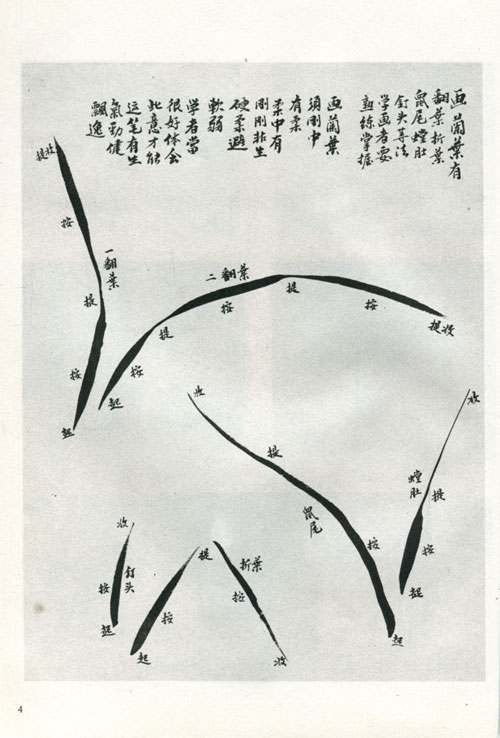 画蘭葉有
翻葉折葉
鼠尾螳肚
钉头等法
学画者要
熟练掌握
画蘭葉
須剛中
有柔
柔中有
剛剛非生
硬柔避
軟弱
学者當
很好体会
此意才能
运笔有生
氣勁健
飄逸
提收
按
一翻葉
提
按
起
二翻葉
提
按
提
按
按
起
提收
收
提
鼠尾
按
起
收
螳肚
提
按
起
收
钉头
按
起
提
按
起
折葉
按
收
4